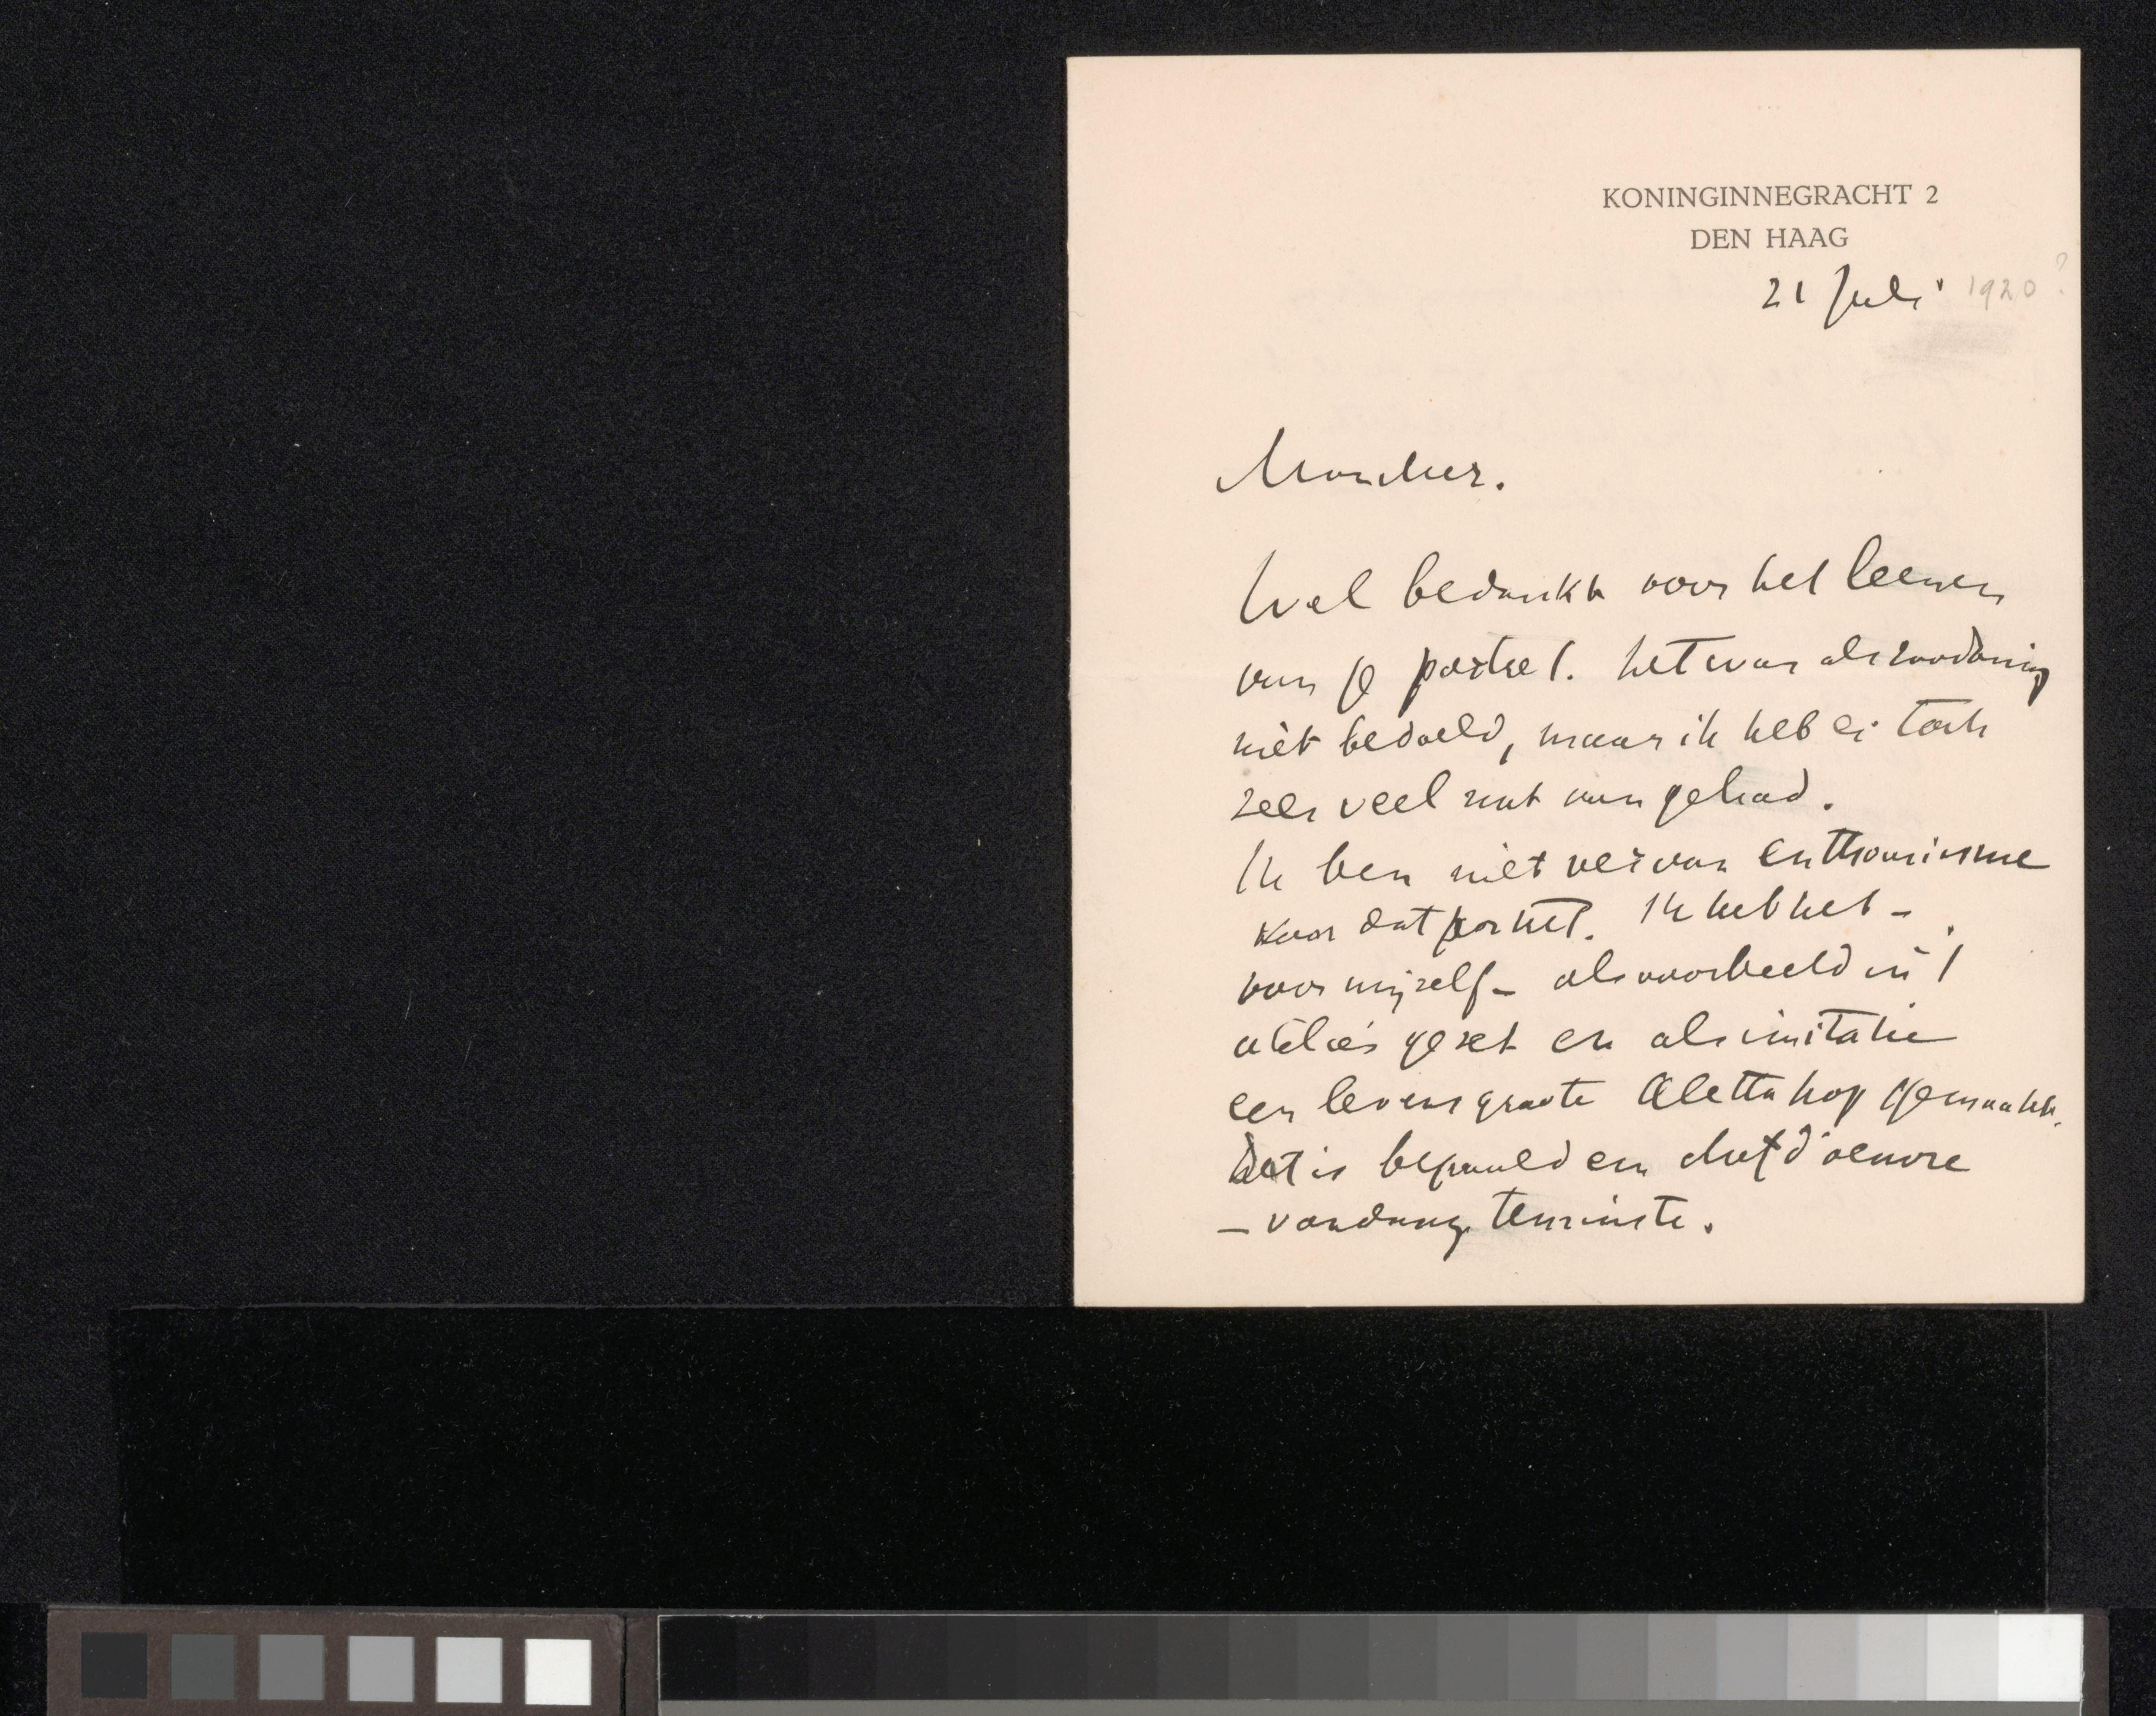 KONINGINNEGRACHT 2
DEN HAAG
21 Juli 1920?
Moncher.
Wel bedankt voor het leenen
van je portret. het was als zoodanig
niet bedoeld, maar ik heb er toch
zeer veel nut van gehad.
Ik ben niet vervan enthousiasme
voor dat portret. Ik heb het -
voor mijzelf - als voorbeeld in 't
atelier gezet en als imitatie
een levensgroote Aletta hop gemaakt.
Dat is bepaald een chef d'oeuvre
- vandaag tenminste.